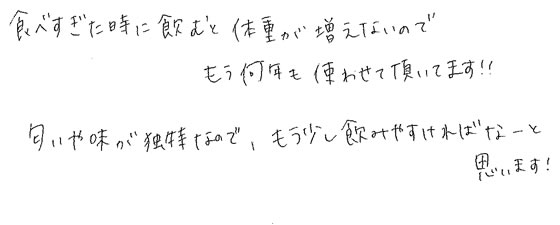 食べすぎた時に飲むと体重が増えないので
もう何年も使わせて頂いてます!!
匂いや味が独特なので、もう少し飲みやすければなーと
思います!